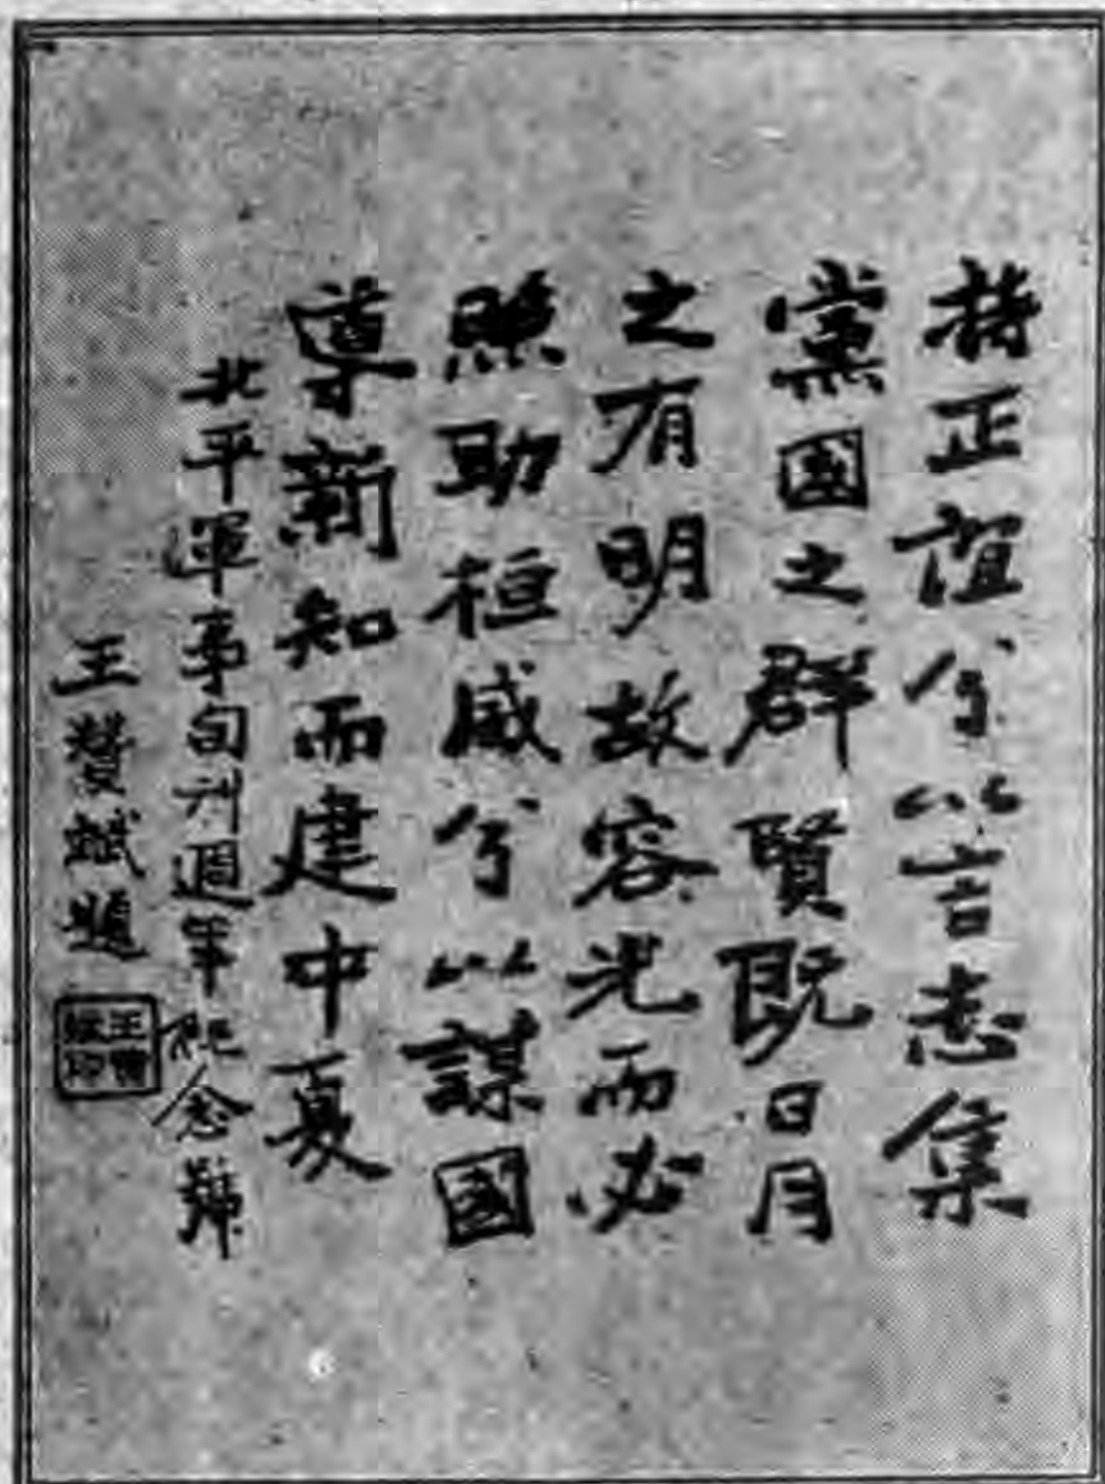 持正誼兮以言志集
黨國之群賢既日月
之有明故容光而必
照助桓威兮以謀國
導新知而建中夏
北平軍事旬刊週年紀念號
王贊斌題
王贊斌印